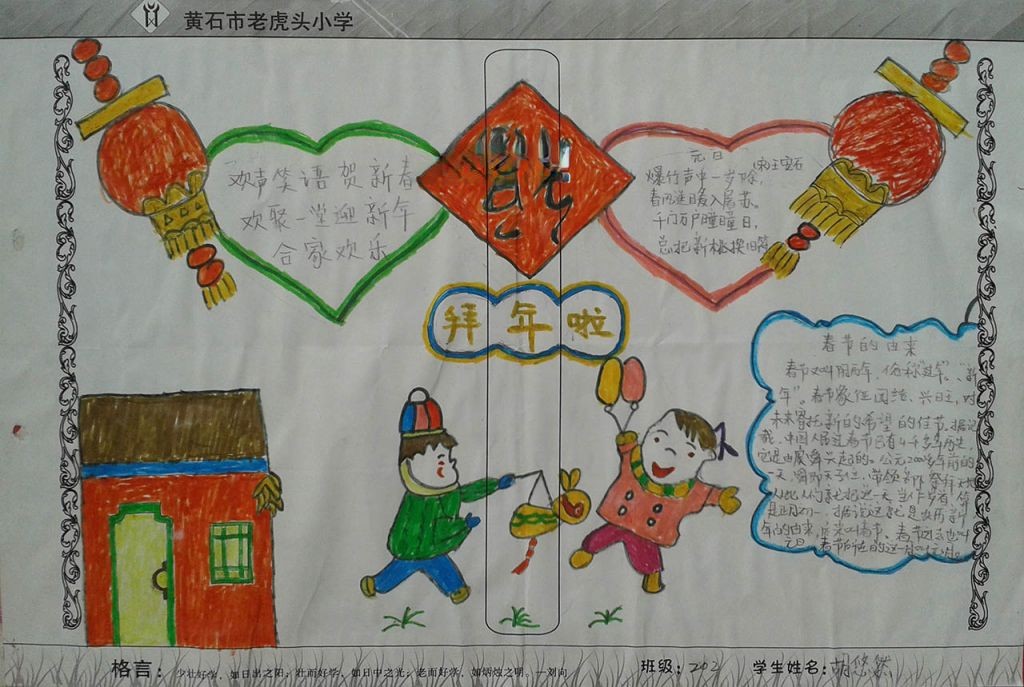 黄石市老虎头小学
欢声笑语贺新春
欢聚一堂迎新年
合家欢乐
元日
宋王安石
爆竹声中一岁除
春风送暖入屠苏。
千门万户曈曈日,
总把新桃换旧符
拜年啦
春节的由来
春节又叫阴历年,俗称"过年"、"新
年"。春节象征团结、兴旺,对
未来寄托新的希望的佳节。据记
载,中国人民过春节已有4千多年历史
它是由虞舜兴起的。公元2000多年前的
一天,舜即天子位,带领
从此人们就把这一天当作岁首
是正月初一,据说这就是农历新
年的由来,后来叫春节。春节
元旦。春节所在的这一月
格言: 少壮好学,如日出之阳;壮而好学,如日中之光;老而好学,如炳烛之明。—刘向
班级: 202
学生姓名: 胡悠然